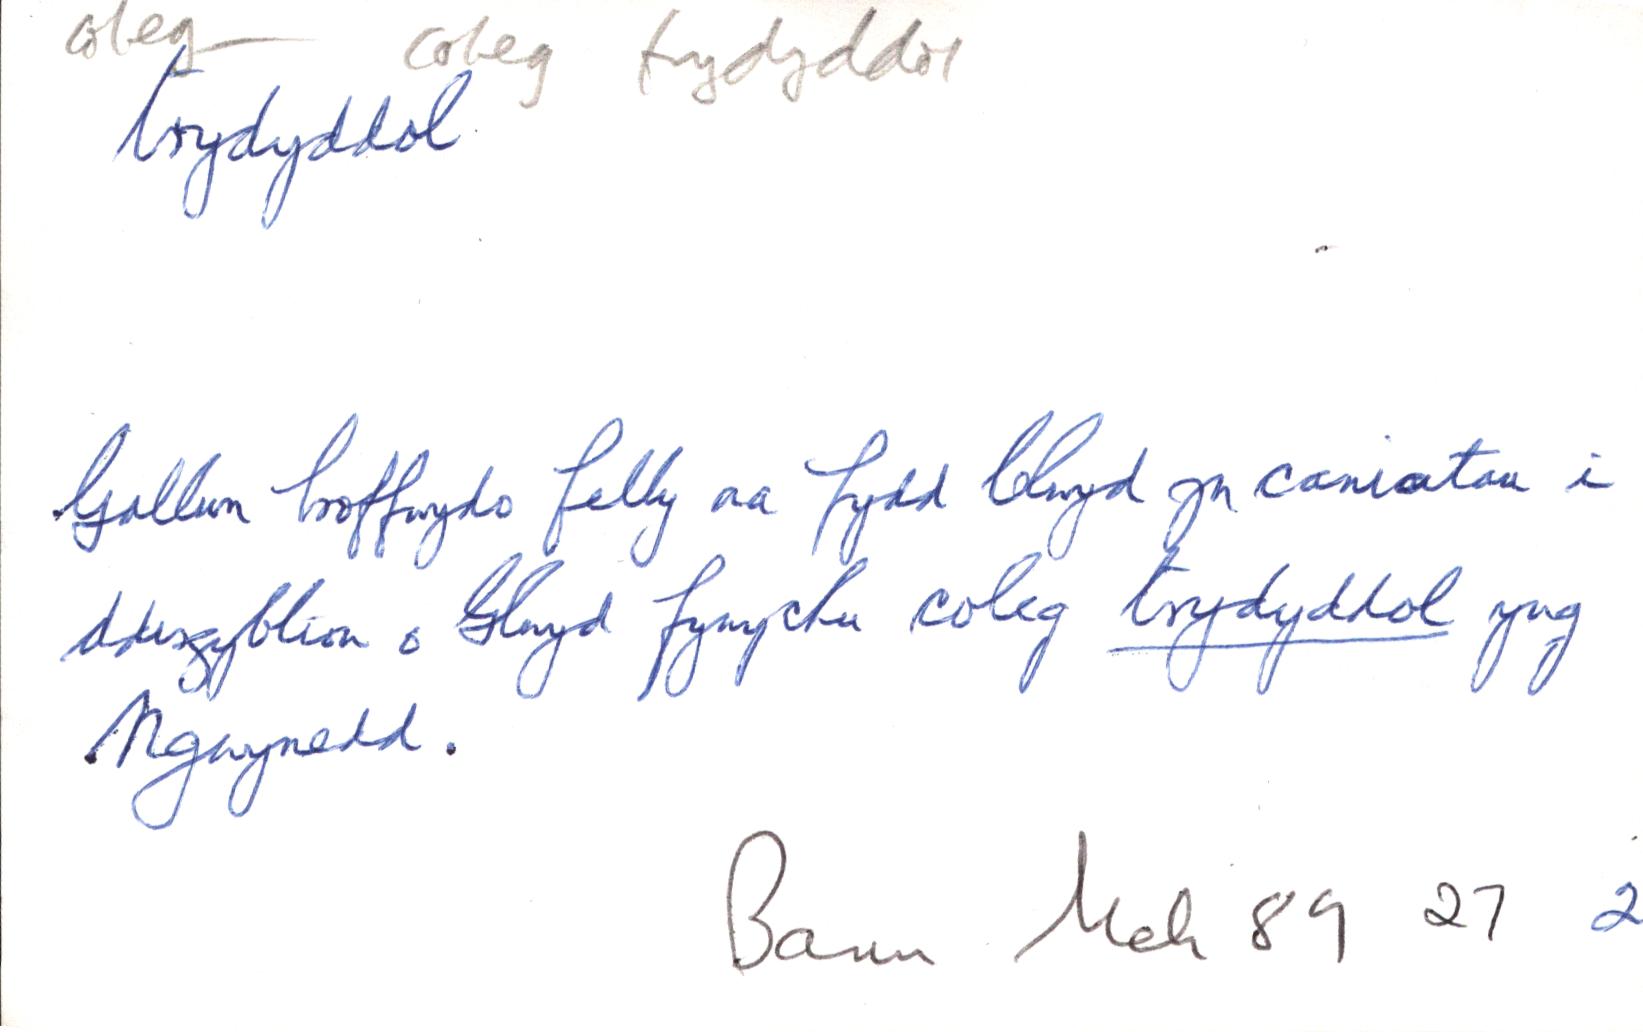 coleg — coleg trydyddol
trydyddol
Gallwn broffwydo felly na fydd Clwyd yn caniatau i
ddisgyblion o Glwyd fynychu coleg trydyddol yng
Ngwynedd.
Barn Meh 89 27 2